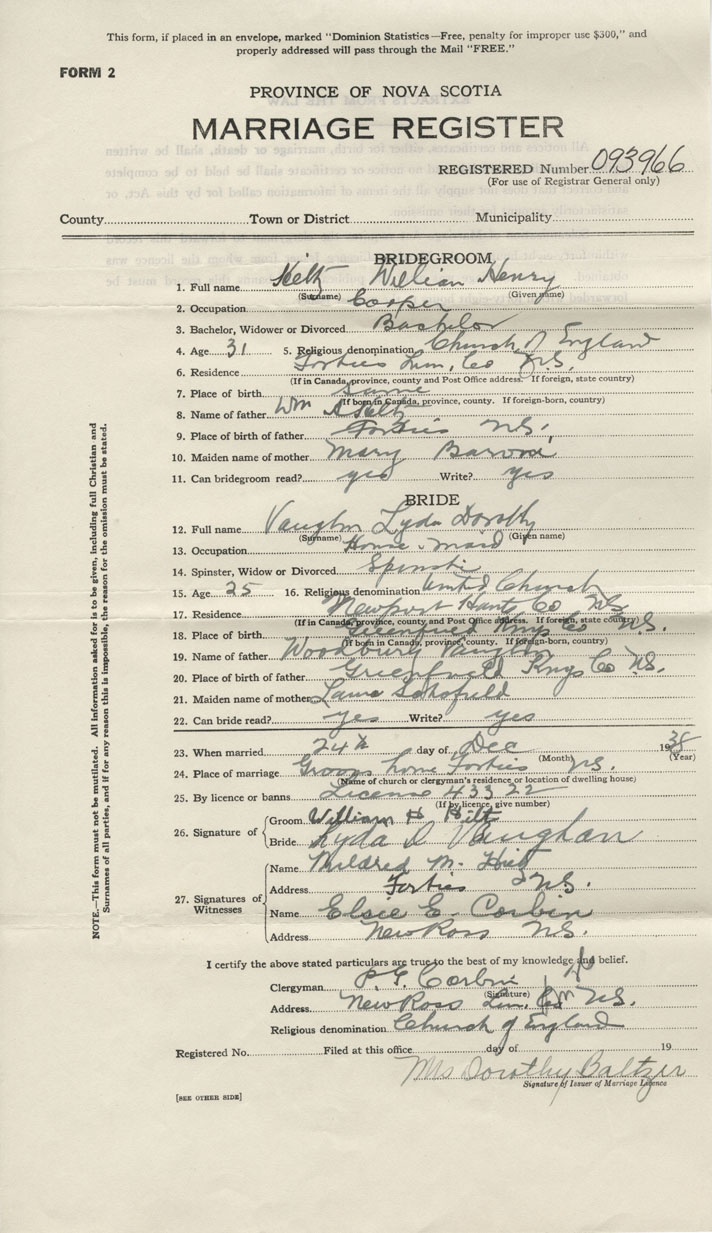 This form, if placed in an envelope, marked "Dominion Statistics—Free, penalty for improper use $300," and
properly addressed will pass through the Mail "FREE."
FORM 2
PROVINCE OF NOVA SCOTIA
MARRIAGE REGISTER
REGISTERED Number 093966
(For use of Registrar General only)
County Town or District Municipality
BRIDEGROOM
1. Full name William Henry
(Surname) (Given name)
2. Occupation Cooper
3. Bachelor, Widower or Divorced Bachelor
4. Age 31 5. Religious denomination Church of England
6. Residence Forties Lun. Co N.S.
(If in Canada, province, county and Post Office address. If foreign, state country)
7. Place of birth Same
(If born in Canada, province, county. If foreign-born, country)
8. Name of father Wm A
9. Place of birth of father Forties N.S.
10. Maiden name of mother Mary
11. Can bridegroom read? yes Write? yes
BRIDE
12. Full name Vaughn Lyda Dorothy
(Surname) (Given name)
13. Occupation House-maid
14. Spinster, Widow or Divorced
15. Age 25 16. Religious denomination United Church
17. Residence Newport Hants Co NS
(If in Canada, province, county and Post Office address. If foreign, state country)
18. Place of birth Greenfield Kings Co N.S.
(If born in Canada, province, county. If foreign-born, country)
19. Name of father Woodbury Vaughn
20. Place of birth of father Greenfield Kings Co N.S.
21. Maiden name of mother Schofield
22. Can bride read? yes Write? yes
23. When married 24th day of Dec 1938
(Month) (Year)
24. Place of marriage Grooms home Forties N.S.
(Name of church or clergyman's residence or location of dwelling house)
25. By licence or banns License 43322
(If by licence, give number)
26. Signature of Groom William H Hiltz
Bride Lyda D Vaughan
27. Signatures of Witnesses
Name Mildred M.
Address Forties N.S.
Name Elsie E. Corbin
Address New Ross N.S.
I certify the above stated particulars are true to the best of my knowledge and belief.
Clergyman Corbin
(Signature)
Address New Ross Lun. Co N.S.
Religious denomination Church of England
Registered No. Filed at this office day of 19
Mrs Dorothy Baltzer
Signature of Issuer of Marriage Licence
[SEE OTHER SIDE]
NOTE.—This form must not be mutilated. All information asked for is to be given, including full Christian and
Surnames of all parties, and if for any reason this is impossible, the reason for the omission must be stated.